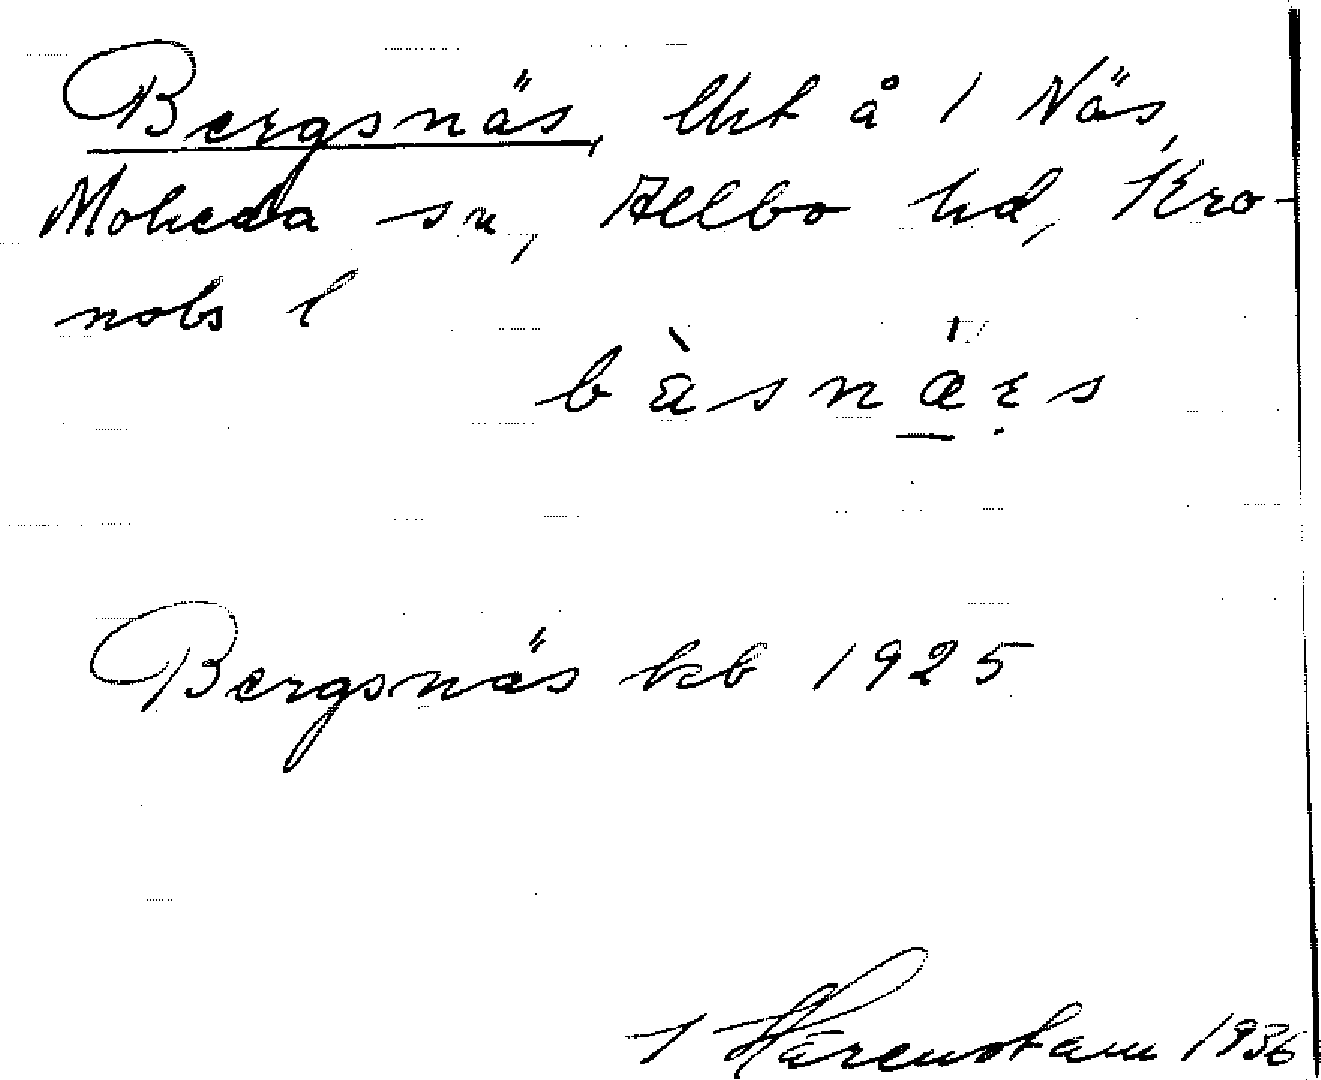 Bergsnäs, lht å 1 Näs,
Moheda sn, Allbo hd, Kro-
nobs l
bàsnäɛs
Bergsnäs kb 1925
1936